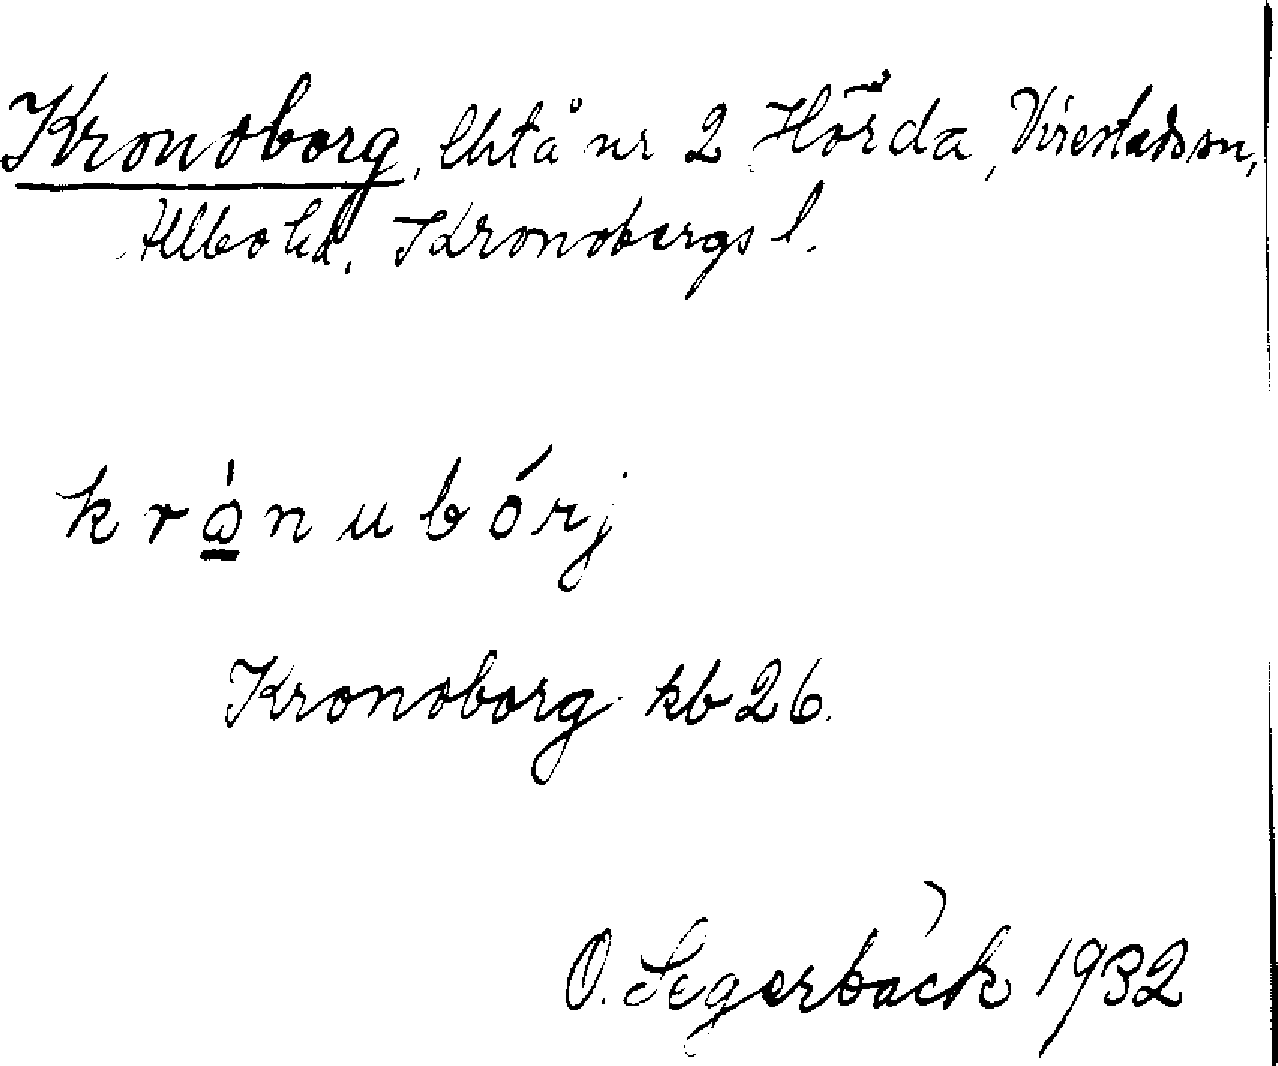 Kronoborg, lhtå nr 2 Hörda, Virestads sn,
Allbo hd, Kronobergs l.
krònubórj
Kronoborg kb 26.
O. Segerbäck 1932